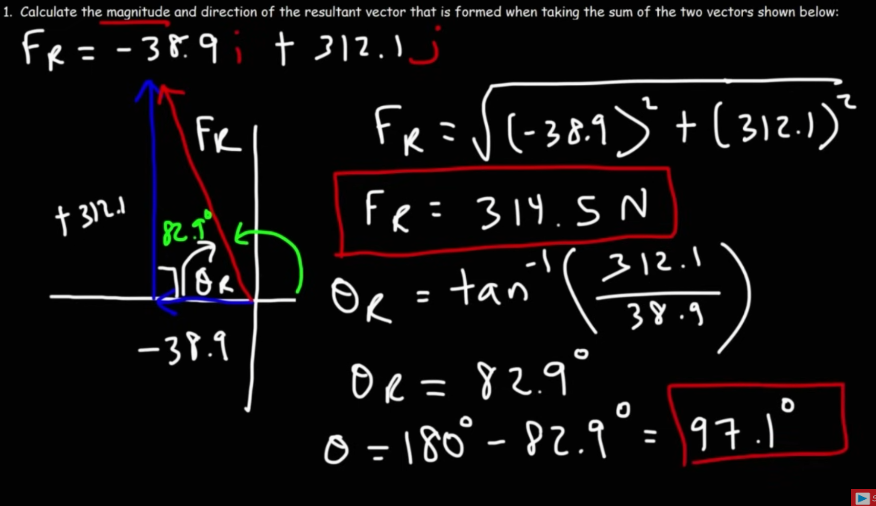 1. Calculate the magnitude and direction of the resultant vector that is formed when taking the sum of the two vectors shown below:
F_R = -38.9 i + 312.1 j
F_R
+312.1
82.9°
θ_R
-38.9
F_R = √((-38.9)² + (312.1)²)
F_R = 314.5 N
θ_R = tan⁻¹(312.1/38.9)
θ_R = 82.9°
θ = 180° - 82.9° = 97.1°